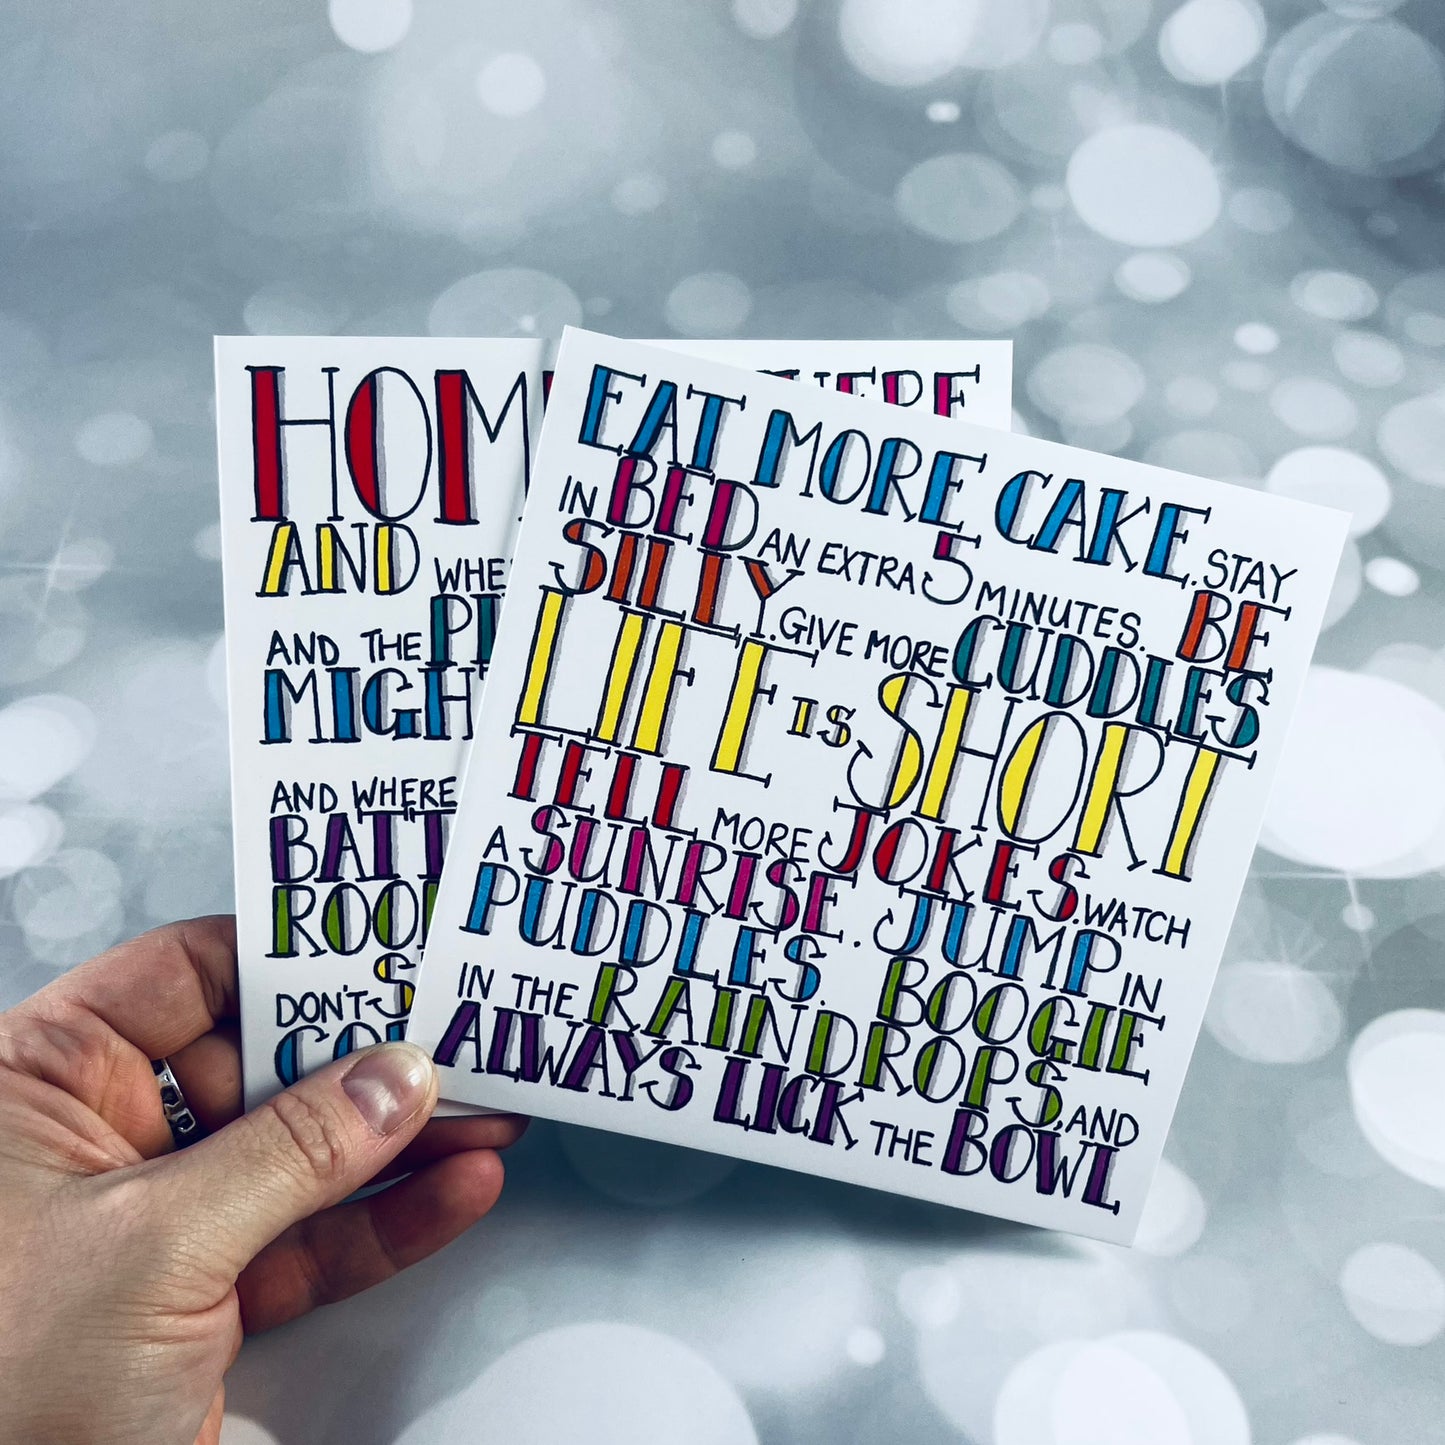 HOM
AND WHE
AND THE
MIGH
AND WHERE
BATT
ROO
DON'T
EAT MORE CAKE. STAY
IN BED AN EXTRA 5 MINUTES. BE
SILLY. GIVE MORE CUDDLES
LIFE IS SHORT
TELL MORE JOKES. WATCH
A SUNRISE. JUMP IN
PUDDLES. BOOGIE
IN THE RAINDROPS, AND
ALWAYS LICK THE BOWL